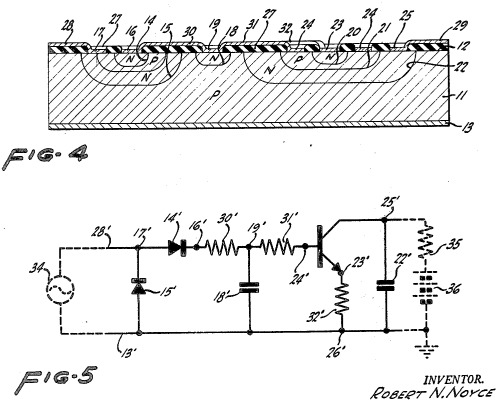 28 17 27 16 14 15 30 19 18 31 27 32 24 23 20 24 21 25 29
12
N P N N N P N 22
P 11
13
FIG-4
28' 17' 14' 16' 30' 19' 31' 24' 25'
34 15' 18' 23' 32' 22' 35 36
13' 26'
FIG-5
INVENTOR.
ROBERT N. NOYCE